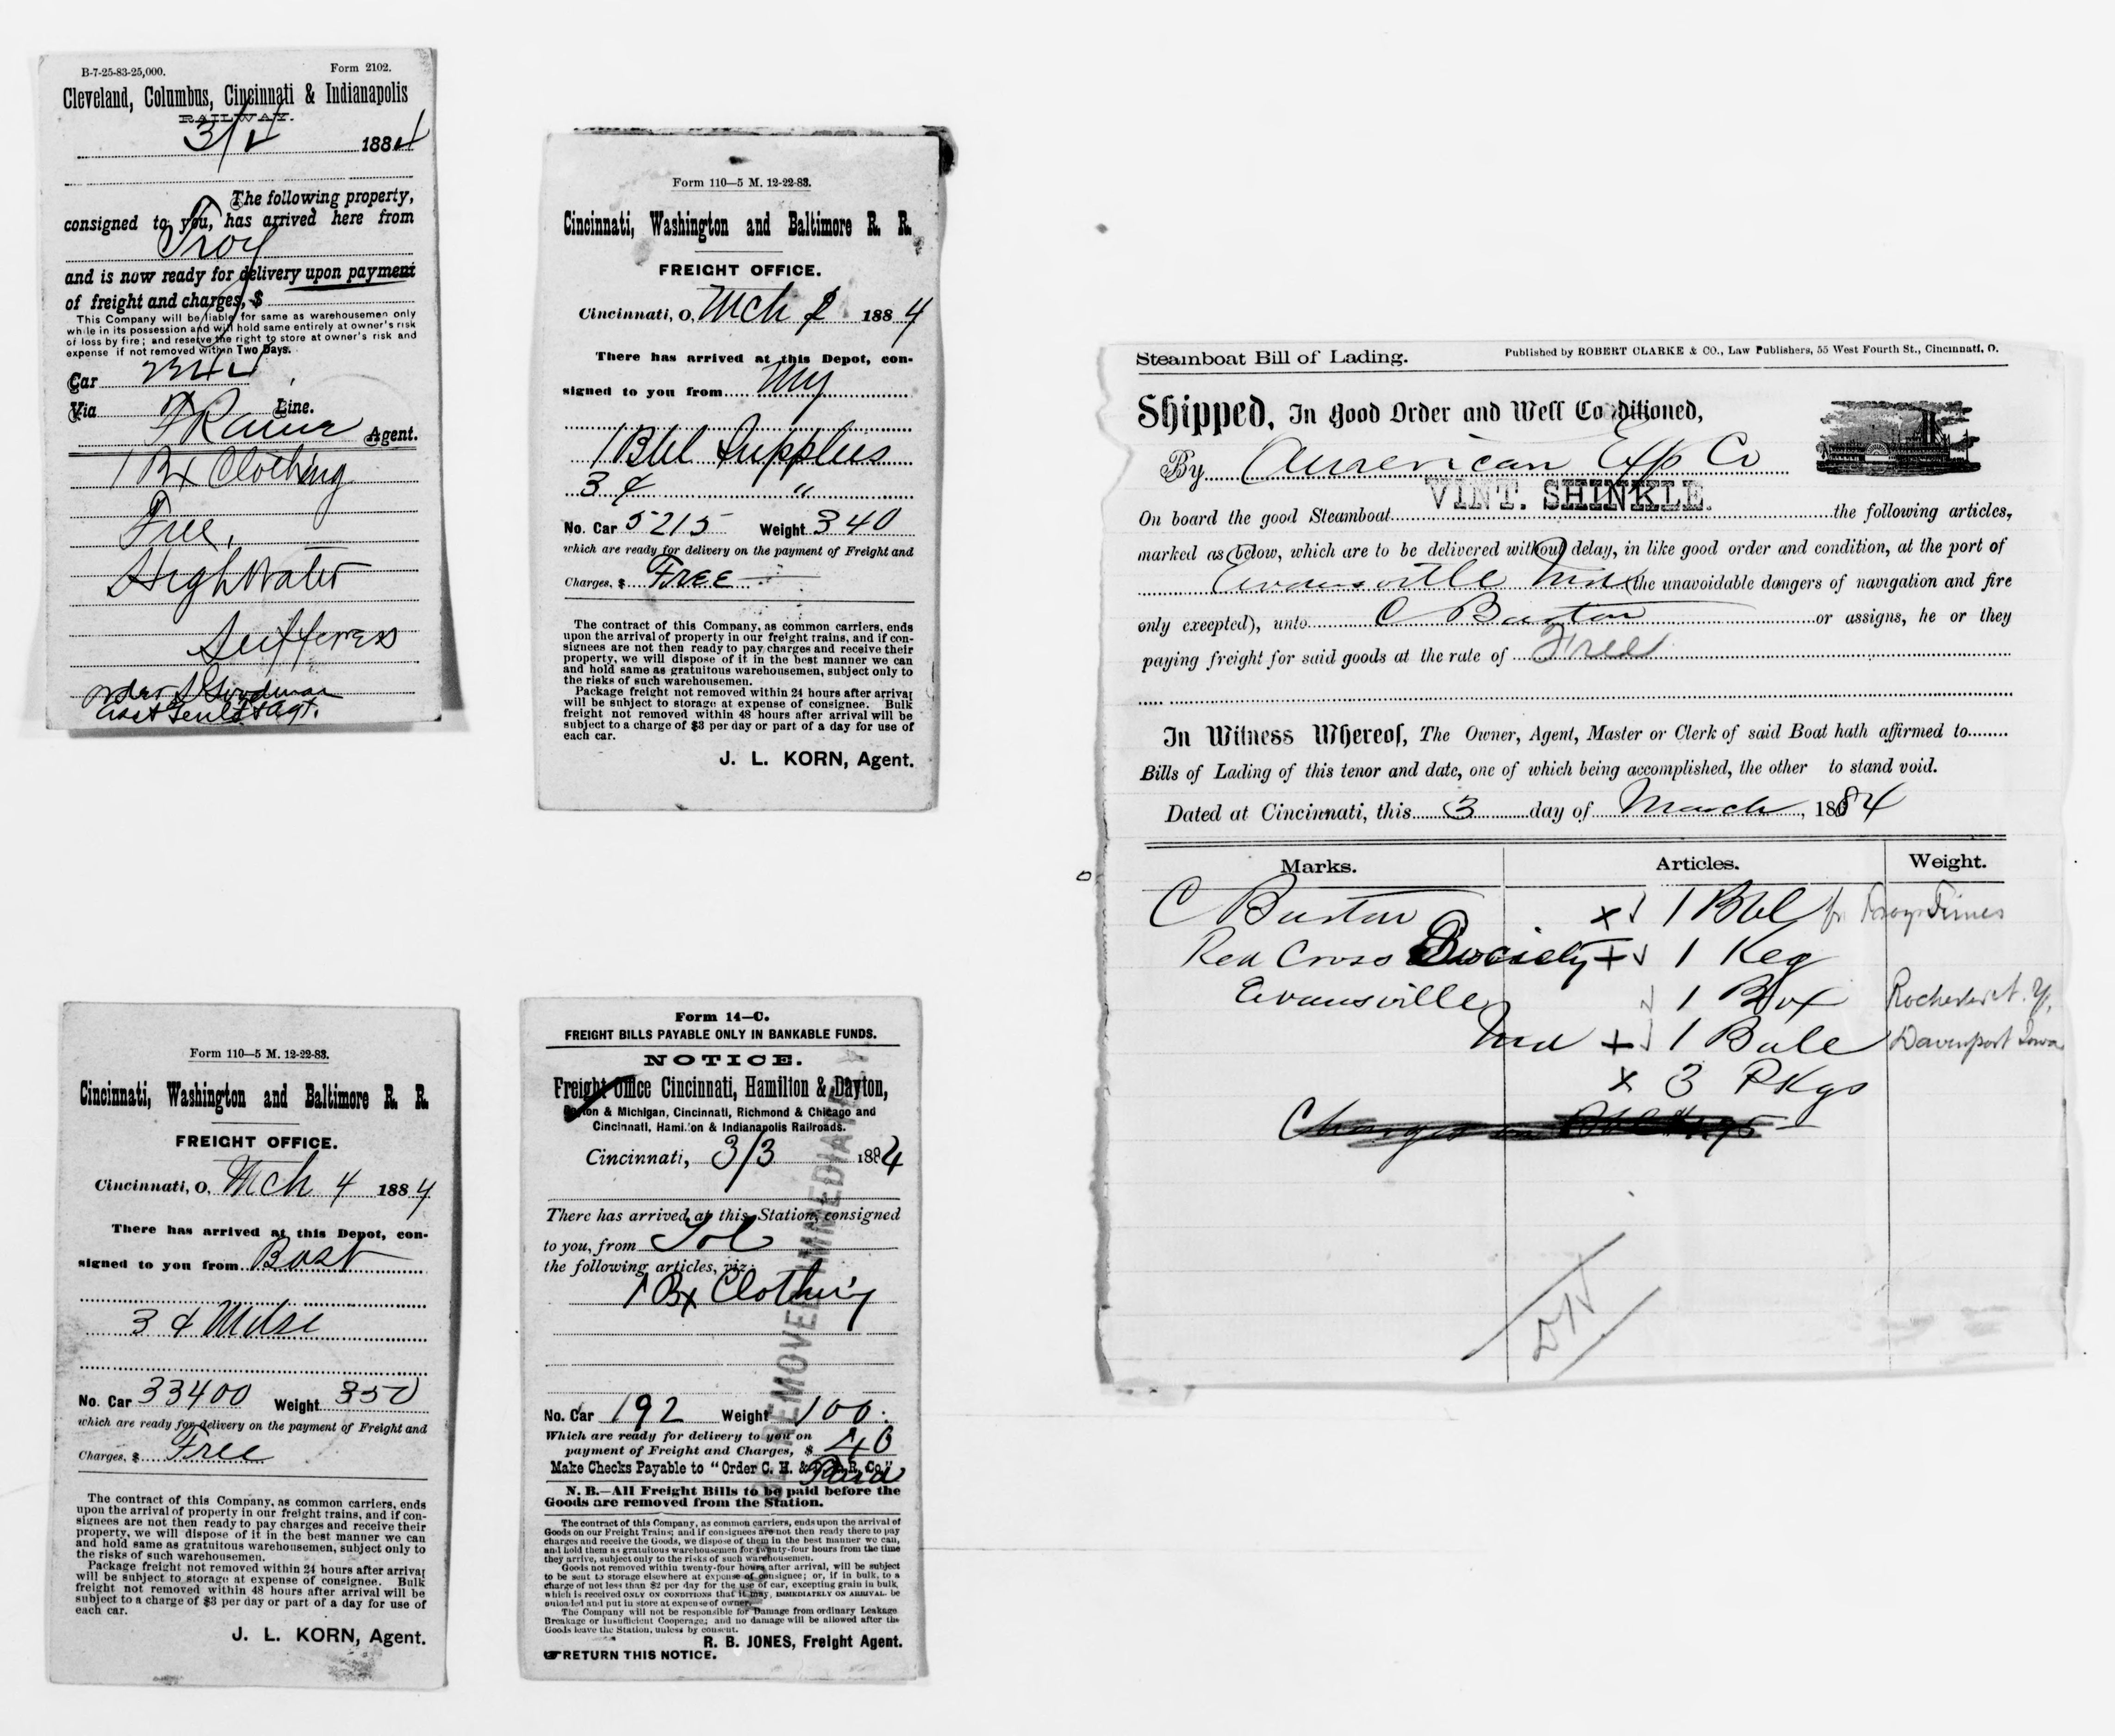 B-7-25-83-25,000. Form 2102.
Cleveland, Columbus, Cincinnati & Indianapolis
RAILWAY.
3/4 1884
The following property,
consigned to you, has arrived here from
Troy
and is now ready for delivery upon payment
of freight and charges, $
This Company will be liable for same as warehousemen only
while in its possession and will hold same entirely at owner's risk
of loss by fire; and reserve the right to store at owner's risk and
expense if not removed within Two Days.
Car
Via Line.
Agent.
1 Bx Clothing
Free,
High Water
Sufferers
order
Form 110—5 M. 12-22-83.
Cincinnati, Washington and Baltimore R. R.
FREIGHT OFFICE.
Cincinnati, O. Mch 1884
There has arrived at this Depot, con-
signed to you from NY
1 Bbl Supplies
3 "
No. Car 5215 Weight 340
which are ready for delivery on the payment of Freight and
Charges, $ FREE
The contract of this Company, as common carriers, ends
upon the arrival of property in our freight trains, and if con-
signees are not then ready to pay charges and receive their
property, we will dispose of it in the best manner we can
and hold same as gratuitous warehousemen, subject only to
the risks of such warehousemen.
Package freight not removed within 24 hours after arrival
will be subject to storage at expense of consignee. Bulk
freight not removed within 48 hours after arrival will be
subject to a charge of $3 per day or part of a day for use of
each car.
J. L. KORN, Agent.
Form 110—5 M. 12-22-83.
Cincinnati, Washington and Baltimore R. R.
FREIGHT OFFICE.
Cincinnati, O. Mch 4 1884
There has arrived at this Depot, con-
signed to you from Bost
3 Mdse
No. Car 33400 Weight 350
which are ready for delivery on the payment of Freight and
Charges, $ Free
The contract of this Company, as common carriers, ends
upon the arrival of property in our freight trains, and if con-
signees are not then ready to pay charges and receive their
property, we will dispose of it in the best manner we can
and hold same as gratuitous warehousemen, subject only to
the risks of such warehousemen.
Package freight not removed within 24 hours after arrival
will be subject to storage at expense of consignee. Bulk
freight not removed within 48 hours after arrival will be
subject to a charge of $3 per day or part of a day for use of
each car.
J. L. KORN, Agent.
Form 14—C.
FREIGHT BILLS PAYABLE ONLY IN BANKABLE FUNDS.
NOTICE.
Freight Office Cincinnati, Hamilton & Dayton,
& Michigan, Cincinnati, Richmond & Chicago and
Cincinnati, Hamilton & Indianapolis Railroads.
Cincinnati, 3/3 1884
There has arrived at this Station, consigned
to you, from Tol
the following articles, viz:
1 Bx Clothing
REMOVED IMMEDIATELY
No. Car 192 Weight 100
Which are ready for delivery to you on
payment of Freight and Charges, $ 40
Make Checks Payable to "Order C. H. & D. R. R. Co."
Paid
N. B.—All Freight Bills to be paid before the
Goods are removed from the Station.
The contract of this Company, as common carriers, ends upon the arrival of
Goods on our Freight Trains; and if consignees are not then ready there to pay
charges and receive the Goods, we dispose of them in the best manner we can,
and hold them as gratuitous warehousemen for twenty-four hours from the time
they arrive, subject only to the risks of such warehousemen.
Goods not removed within twenty-four hours after arrival, will be subject
to be sent to storage elsewhere at expense of consignee; or, if in bulk, to a
charge of not less than $2 per day for the use of car, excepting grain in bulk,
which is received ONLY ON CONDITIONS that it may, IMMEDIATELY ON ARRIVAL, be
unloaded and put in store at expense of owner.
The Company will not be responsible for Damage from ordinary Leakage
Breakage or Insufficient Cooperage; and no damage will be allowed after the
Goods leave the Station, unless by consent.
R. B. JONES, Freight Agent.
☞RETURN THIS NOTICE.
Steamboat Bill of Lading. Published by ROBERT CLARKE & CO., Law Publishers, 55 West Fourth St., Cincinnati, O.
Shipped, In Good Order and Well Conditioned,
By American Exp Co
On board the good Steamboat VINT. SHINKLE. the following articles,
marked as below, which are to be delivered without delay, in like good order and condition, at the port of
Evansville Ind (the unavoidable dangers of navigation and fire
only excepted), unto C Barton or assigns, he or they
paying freight for said goods at the rate of Free
In Witness Whereof, The Owner, Agent, Master or Clerk of said Boat hath affirmed to
Bills of Lading of this tenor and date, one of which being accomplished, the other to stand void.
Dated at Cincinnati, this 3 day of March, 1884
Marks. Articles. Weight.
C Barton x 1 Bbl fr Troy Times
Red Cross Society + 1 Keg
Evansville 1 Box Rochester N. Y.
Ind + 1 Bale Davenport Iowa
x 3 Pkgs
Charges